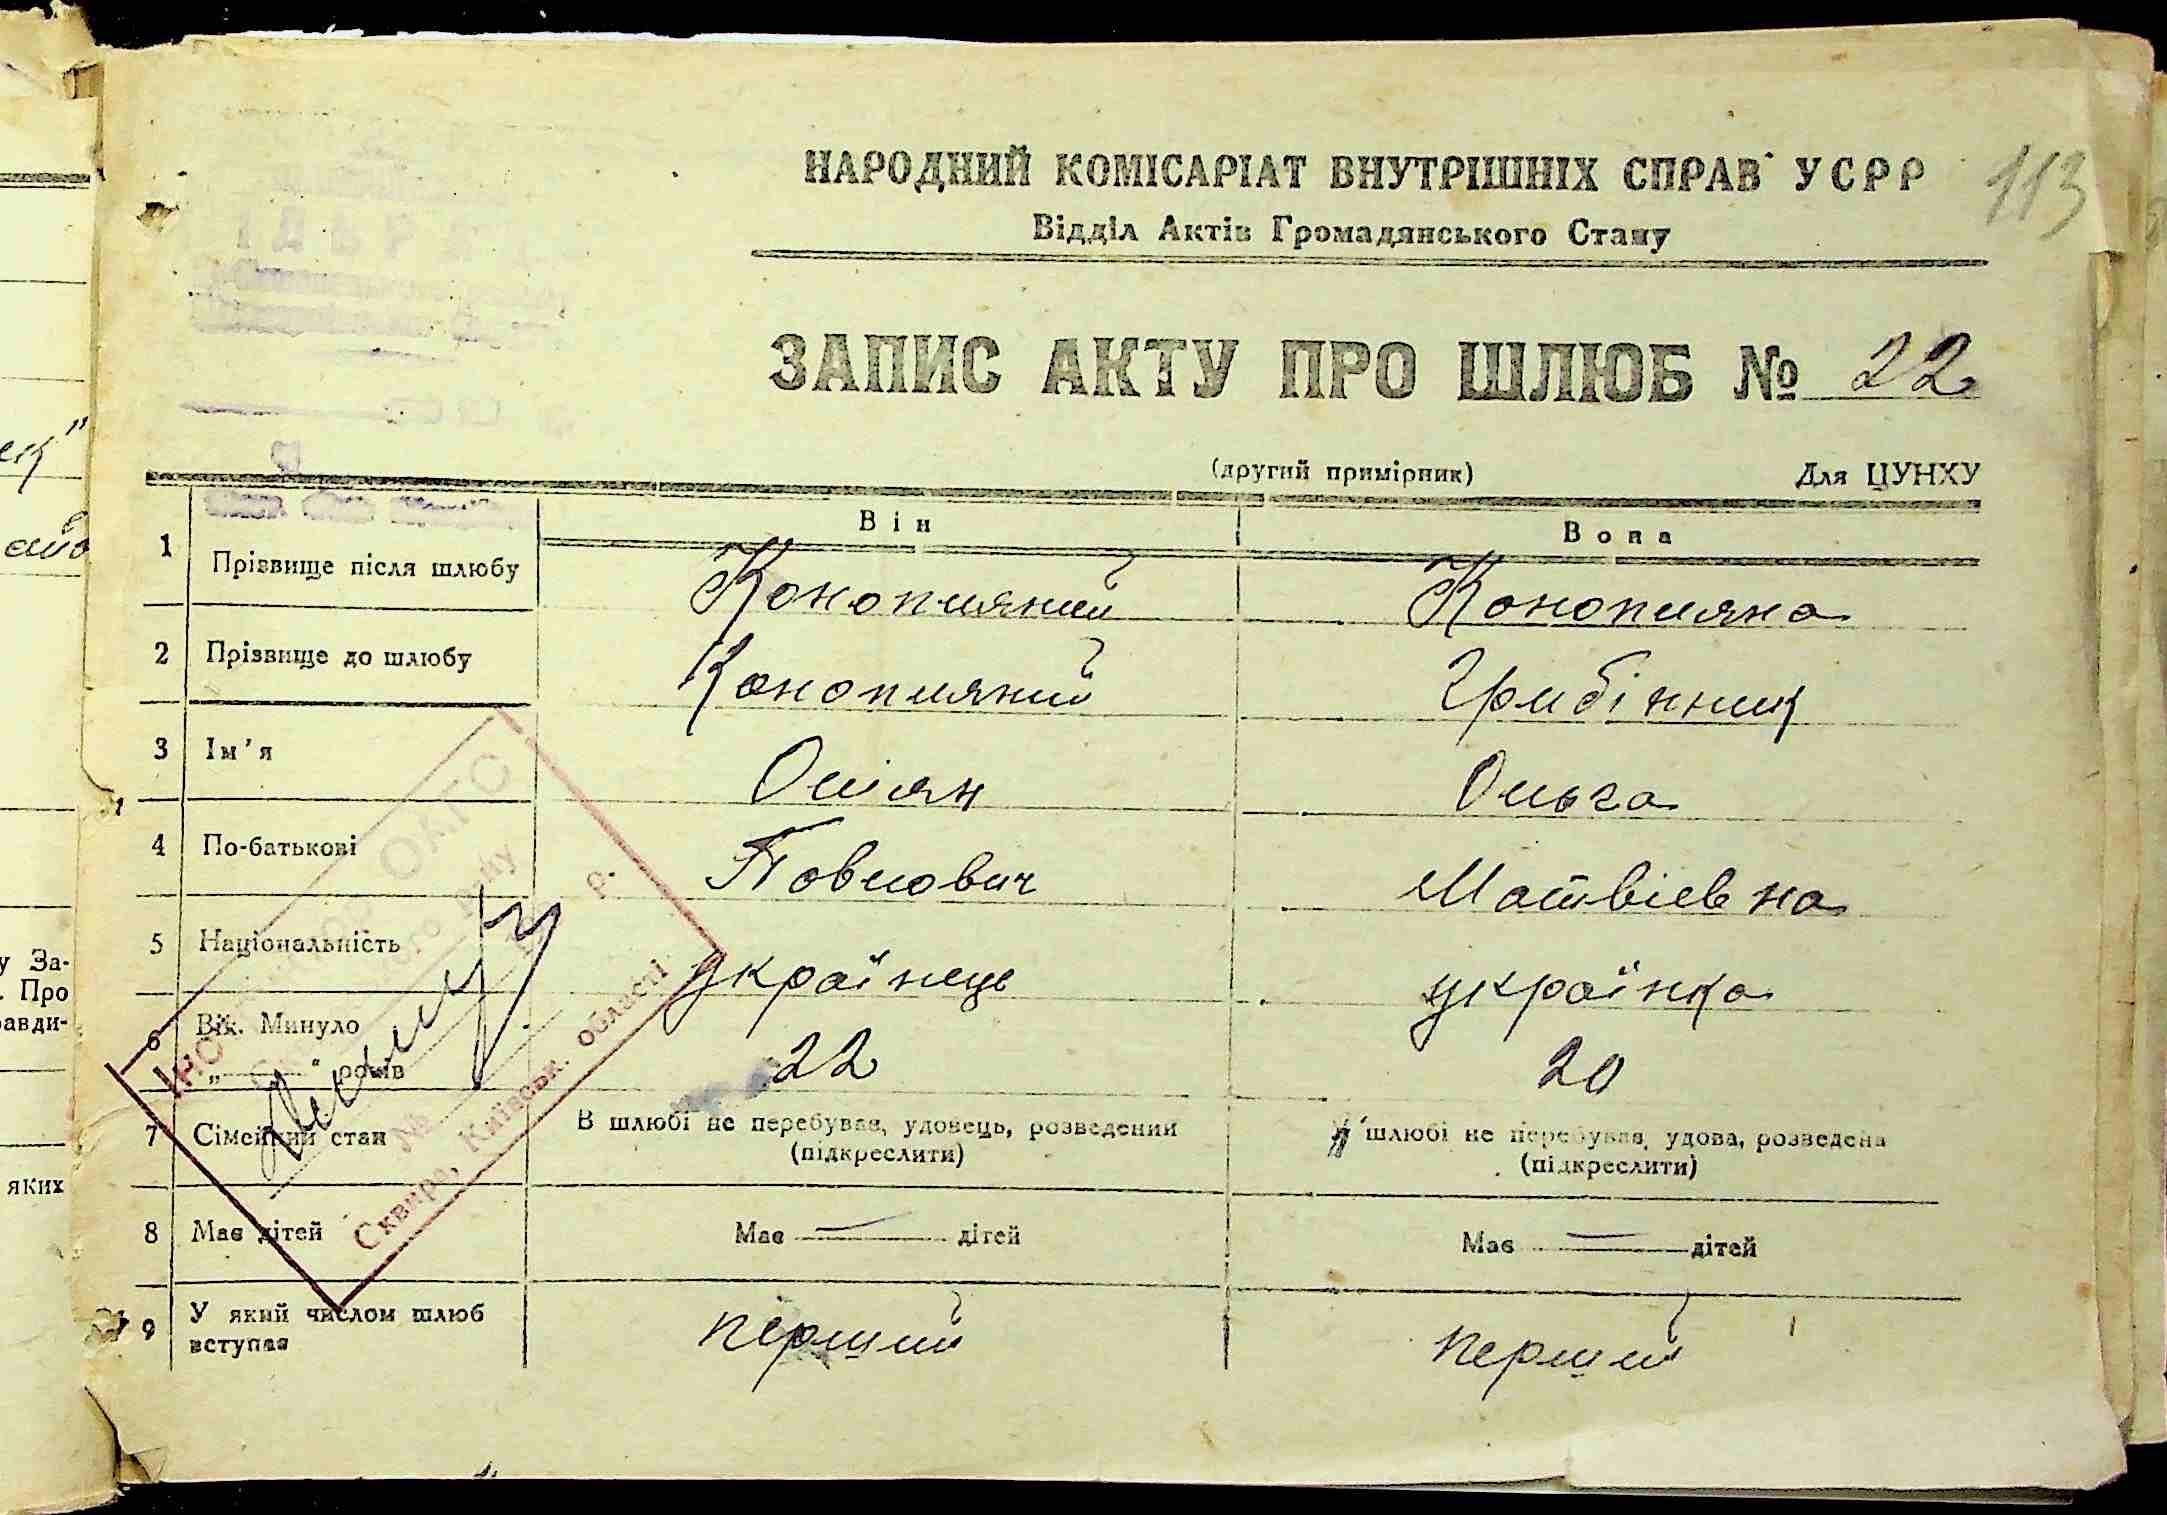 НАРОДНИЙ КОМІСАРІАТ ВНУТРІШНІХ СПРАВ УСРР
113
Відділ Актів Громадянського Стану
ЗАПИС АКТУ ПРО ШЛЮБ № 22
(другий примірник) Для ЦУНХУ
Він Вона
1 Прізвище після шлюбу Конопляний Конопляна
2 Прізвище до шлюбу Конопляний Грибінник
3 Ім'я Оліян Ольга
4 По-батькові Павлович Матвіевна
5 Національність українець українка
6 Вік. Минуло
„ " років 22 20
7 Сімейний стан В шлюбі не перебував, удовець, розведений
(підкреслити)
шлюбі не перебувала, удова, розведена
(підкреслити)
8 Має дітей Має — дітей Має — дітей
9 У який числом шлюб
вступає перший перший
р.
№
Сквира, Київськ. області
ек"
у За-
. Про
равди-
яких